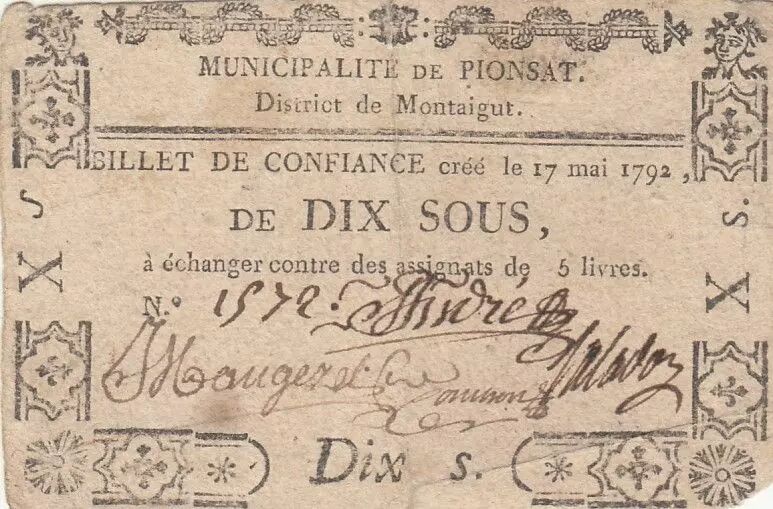 MUNICIPALITÉ DE PIONSAT.
District de Montaigut.
BILLET DE CONFIANCE créé le 17 mai 1792,
DE DIX SOUS,
à échanger contre des assignats de 5 livres.
N.º 1572. André
X S
X s.
Dix s.